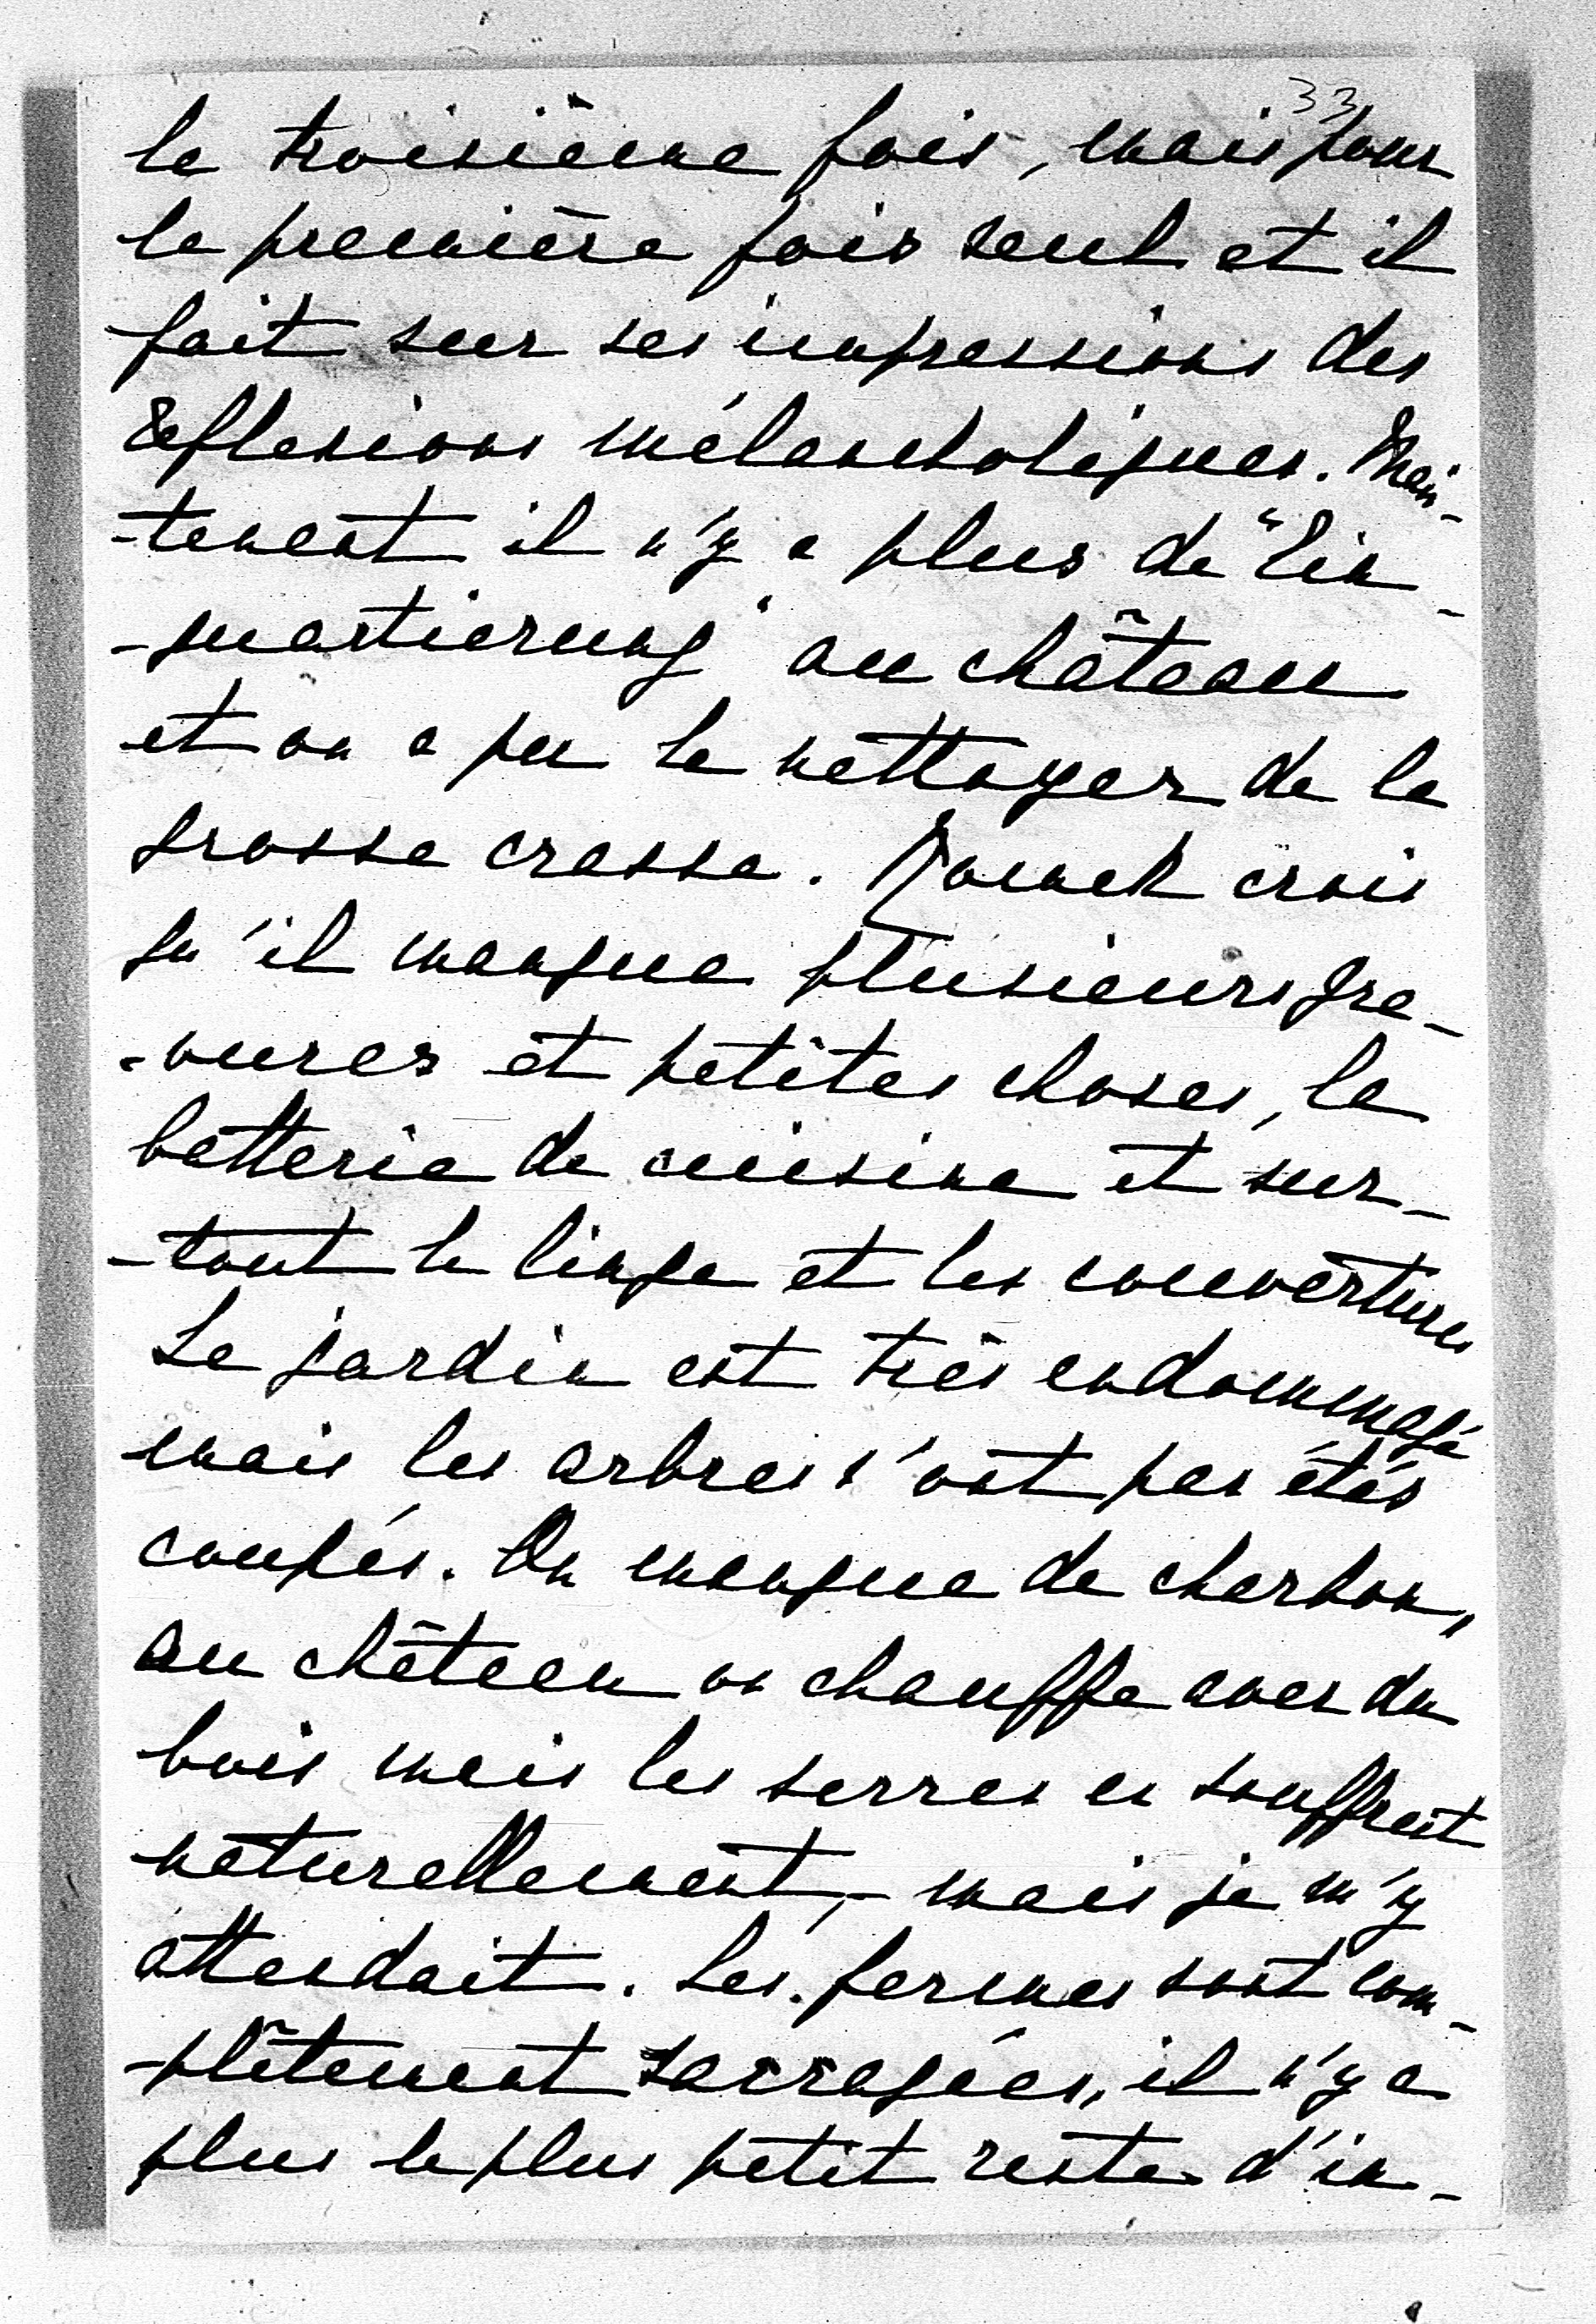 33
la troisième fois, mais pour
la première fois seul et il
fait sur ses impressions des
réflexions mélancholiques. Main-
-tenent il n'y a plus de "Ein-
-quartierung" au château
et on a pu le nettoyer de la
grosse crasse. crois
qu'il manque plusieurs gra-
-vures et petites choses, la
batterie de cuisine et sur-
-tout le linge et les couvertures
Le jardin est très endommagé
mais les arbres n'ont pas étés
coupés. On manque de charbon,
au château on chauffe avec du
bois mais les serres en souffrent
naturellement, - mais je m'y
attendait. Les fermes sont com-
-plêtement saccagées, il n'y a
plus le plus petit reste d'in-